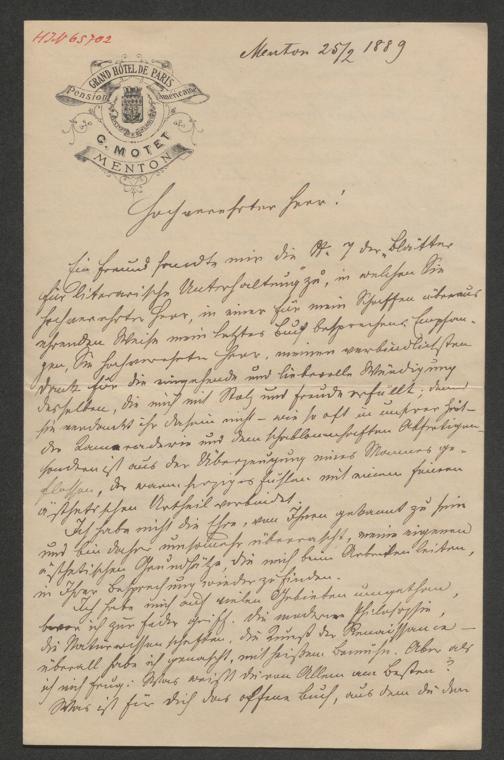 HIN 65702
Menton 25/2 1889
GRAND HÔTEL DE PARIS
Pension Américaine
C. MOTET
MENTON
Hochverehrter Herr!
Ein Freund sandte mir die Nr. 7 der „Blätter
für literarische Unterhaltung" zu, in welchen Sie
hochverehrter Herr, in einer für mein Schaffen überaus
ehrenden Weise mein letztes Buch besprechen. Empfan-
gen, Sie hochverehrter Herr, meinen verbindlichsten
Dank für die eingehende und liebevolle Würdigung
desselben, die mich mit Stolz und Freude erfüllt, denn
sie verdankt ihr Dasein nicht – wie so oft in unserer Zeit –
der Kameraderie und dem schablonenhaften
sondern ist aus der Überzeugung eines Mannes ge-
flossen, der warmherziges Fühlen mit einem feinen
ästhetischen Urtheil verbindet.
Ich habe nicht die Ehre, von Ihnen gekannt zu sein
und bin daher umsomehr überrascht, meine eigenen
ästhetischen Grundsätze, die mich beim Arbeiten leiten,
in Ihrer Besprechung wiederzufinden.
Ich habe mich auf vielen Gebieten umgethan,
bevor ich zur Feder griff. Die moderne Philosophie,
die Naturwissenschaften, die Kunst der Renaissance –
überall habe ich genascht, mit heißem Bemühn. Aber als
ich mich frug: Was weißt du von Allem am Besten?
Was ist für Dich das offene Buch, aus dem du den